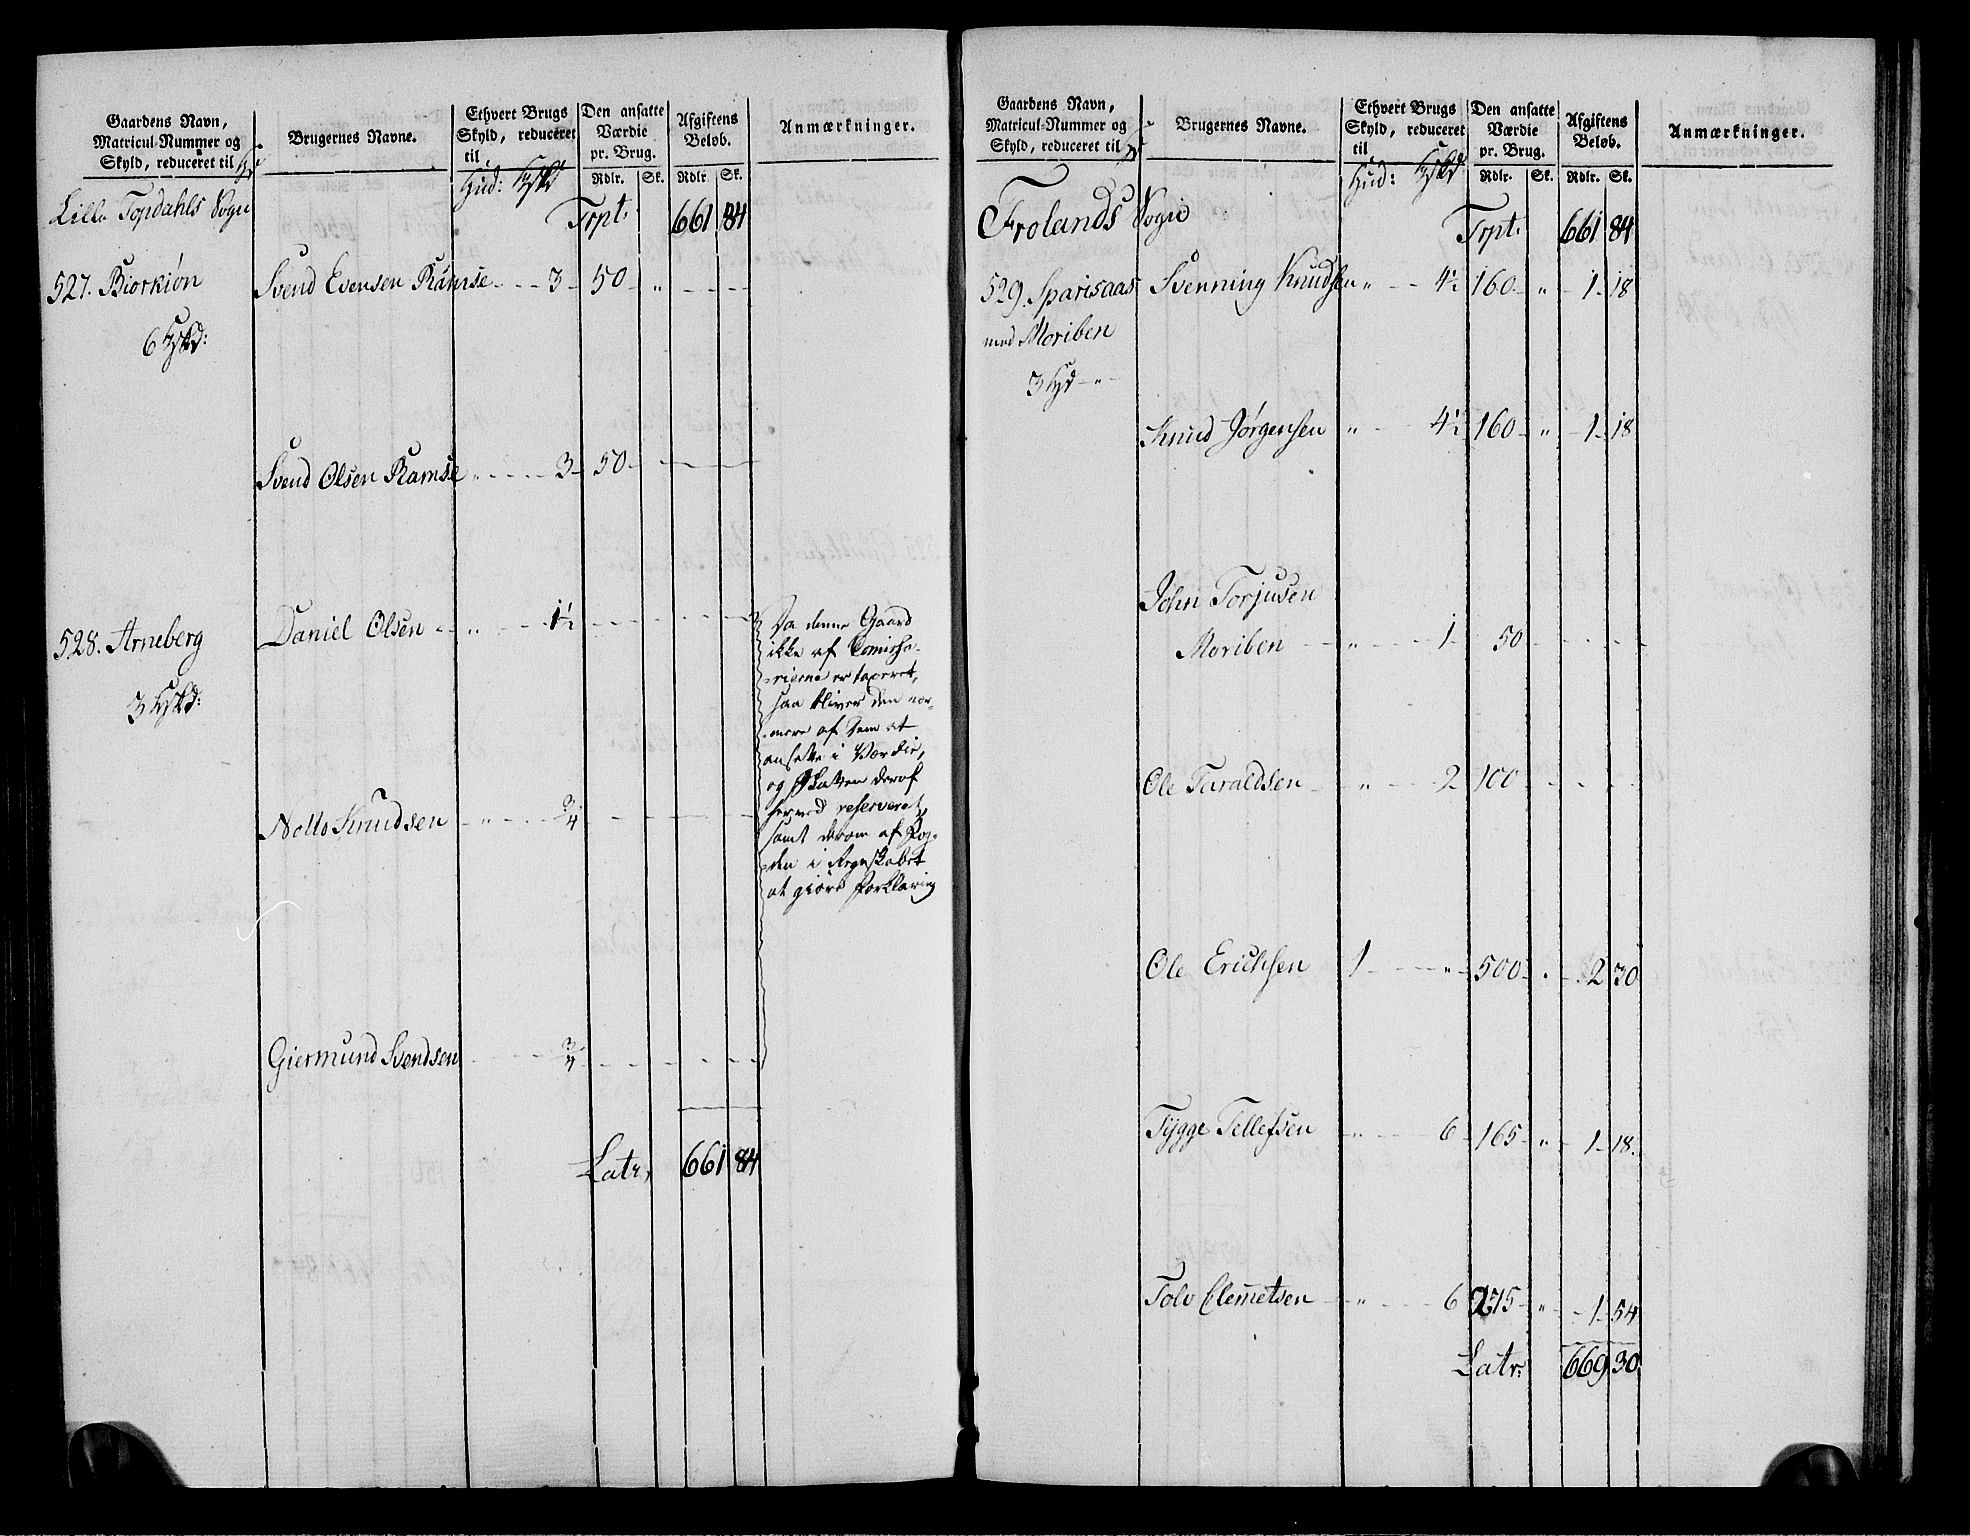 Gaardens Navn,
Matricul-Nummer og
Skyld, reduceret til
Brugernes Navne.
Ethvert Brugs
Skyld, reduceret
til
Hud:
Den ansatte
Værdie
pr. Brug.
Rdlr. Sk.
Afgiftens
Beløb.
Rdlr Sk.
Anmærkninger.
Lille Topdahls Sogn
Trpt. 661 84
527. Biorkiøn Svend Evensen Ramse 3 50 "
6
Svend Olsen Ramse " 3 50
528. Arneberg Daniel Olsen " 1½
3
Da denne Gaard
ikke af Comissa-
rierne er taxeret,
saa bliver den nær-
mere af Dem at
ansette i Værdie,
og Skatten deraf
herved reserveret,
samt derom af Fog-
den i Regnskabet
at giøre Forklaring
Nolls Knudsen " ¾
Giermund Svendsen ¾
Latr. 661 84
Gaardens Navn,
Matricul-Nummer og
Skyld, reduceret til
Brugernes Navne.
Ethvert Brugs
Skyld, reduceret
til
Hud:
Den ansatte
Værdie
pr. Brug.
Rdlr. Sk.
Afgiftens
Beløb.
Rdlr. Sk.
Anmærkninger.
Frolands Sogn
Trpt. 661 84
529. Sparisaas Svenning Knudsen " 4½ 160 " 1 18
med Moriben
3 "
Knud Jørgensen " 4½ 160 " 1 18
John Torjusen
Moriben " 1 50
Ole Taraldsen " 2 100
Ole Erichsen 1 " 500 " 2 30
Tygge Tellefsen " 6 165 " 1 18
Tolv Clemetsen " 6 275 " 1 54
Latr: 669 30